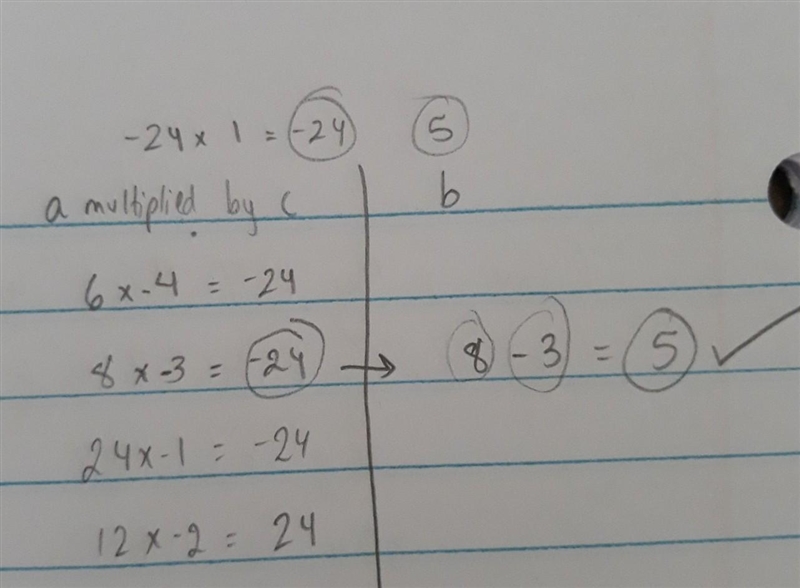 -24 x 1 = -24 5
a multiplied by c b
6 x -4 = -24
8 x -3 = -24 → 8 - 3 = 5 ✓
24 x -1 = -24
12 x -2 = 24